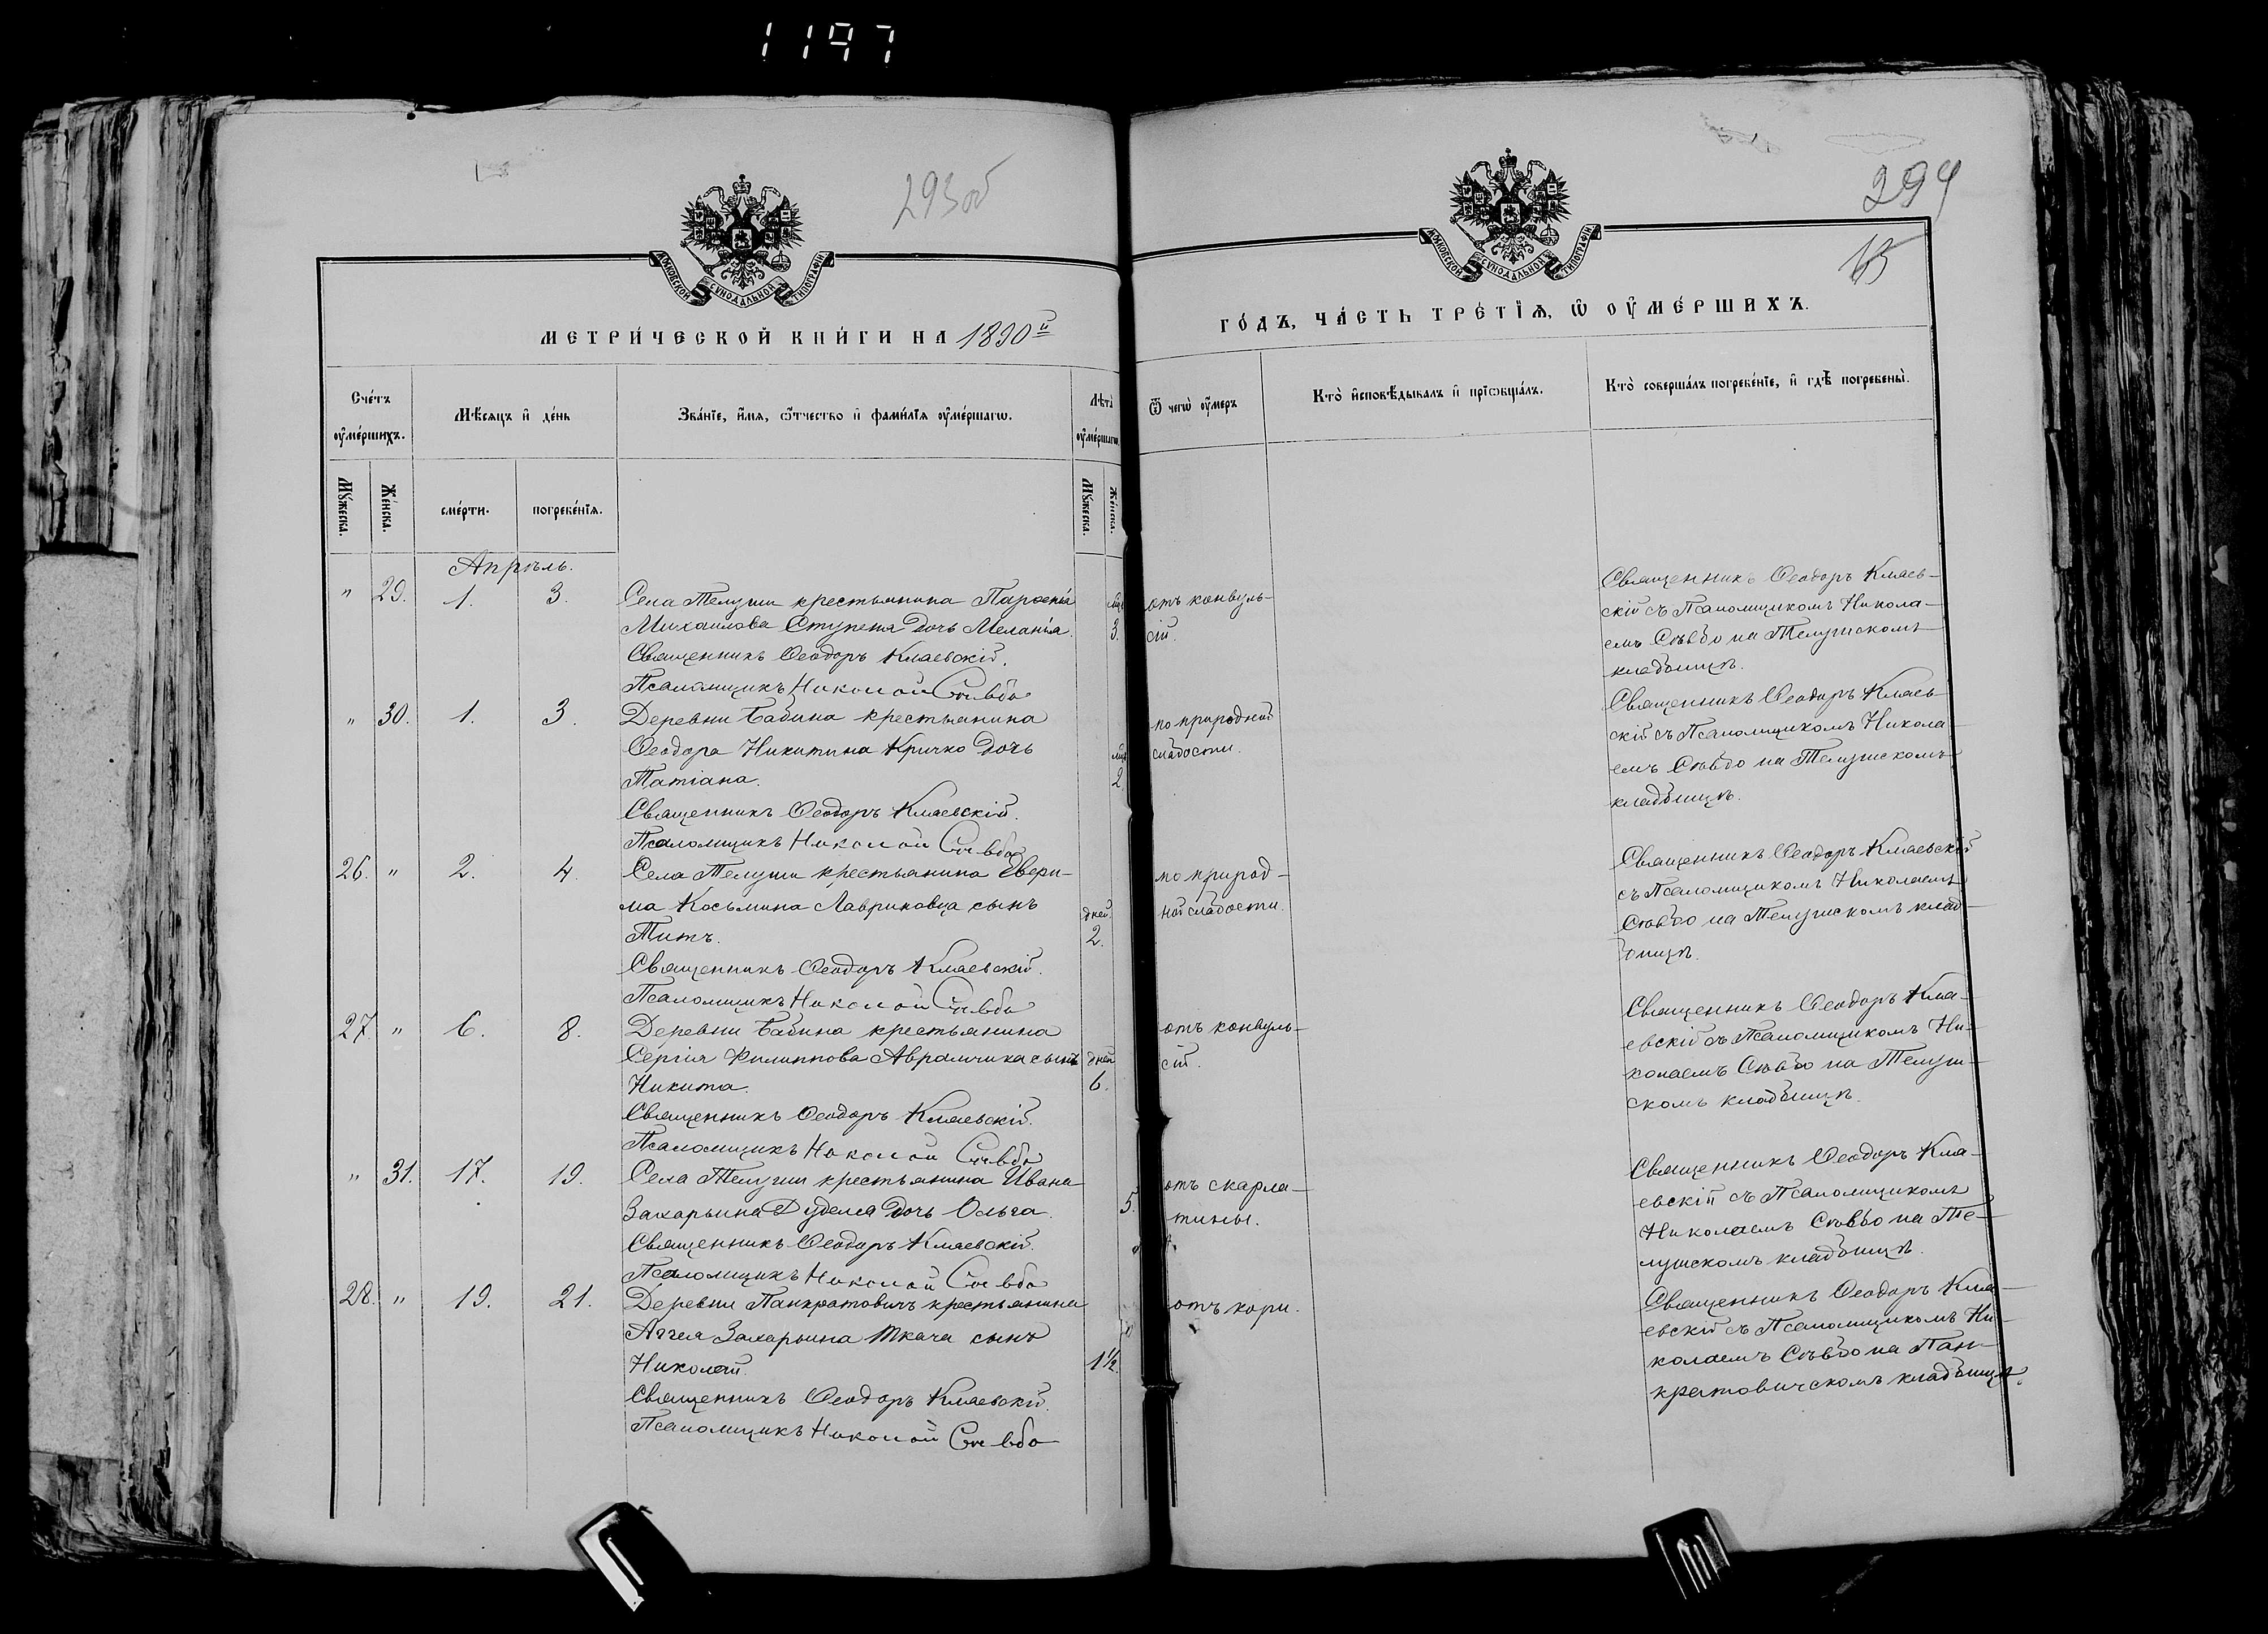 1197
293об
294
15
МОСКОВСКОЙ СѴНОДАЛЬНОЙ ТИПОГРАФІИ
МОСКОВСКОЙ СѴНОДАЛЬНОЙ ТИПОГРАФІИ
МЕТРИ́ЧЕСКОЙ КНИ́ГИ НА 1890й
ГО́ДЪ, ЧА́СТЬ ТРЕ́ТІѦ, Ѡ҆ ОУ҆МЕ́РШИХЪ.
Сче́тъ оу҆ме́ршихъ.
Мѣ́сяцъ и҆ де́нь
Зва́нїе, и҆́мѧ, ѻ҆́тчество и҆ фами́лїѧ оу҆ме́ршагѡ.
Лѣта̀ оу҆ме́ршагѡ.
Ѿ чегѡ̀ оу҆́меръ
Кто̀ и҆сповѣ́дывалъ и҆ прїѡбща́лъ.
Кто̀ соверша́лъ погребе́нїе, и҆ гдѣ̀ погребены̀.
Мꙋ́жеска. Же́нска. сме́рти. погребе́нїѧ. Мꙋ́жеска. Же́нска.
Апрѣль.
" 29. 1. 3. Села Телуши крестьянина Парѳенія
Михаилова Ступеня дочь Меланія. мцъ 3.
Священникъ Ѳеодоръ Клаевскій.
Псаломщикъ Николай Сѣвбо
отъ конвуль-
сій.
Священникъ Ѳеодоръ Клаев-
скій съ Псаломщикомъ Никола-
емъ Сѣвбо на Телушскомъ
кладбищѣ.
" 30. 1. 3. Деревни Бабина крестьянина
Ѳеодора Никитина Кричко дочь
Татіана. мцъ 2
Священникъ Ѳеодоръ Клаевскій.
Псаломщикъ Николай Сѣвбо
по природной
слабости.
Священникъ Ѳеодоръ Клаев-
скій съ Псаломщикомъ Никола-
емъ Сѣвбо на Телушскомъ
кладбищѣ.
26. " 2. 4. Села Телуши крестьянина
Косьмина Лавриковца сынъ
Титъ. дней 2.
Священникъ Ѳеодоръ Клаевскій.
Псаломщикъ Николай Сѣвбо
по природ-
ной слабости.
Священникъ Ѳеодоръ Клаевскій
съ Псаломщикомъ Николаемъ
Сѣвбо на Телушскомъ клад-
бищѣ.
27. " 6. 8. Деревни Бабина крестьянина
Сергія Филиппова Аврамчика сынъ
Никита. дней 6.
Священникъ Ѳеодоръ Клаевскій.
Псаломщикъ Николай Сѣвбо
отъ конвуль-
сій.
Священникъ Ѳеодоръ Кла-
евскій съ Псаломщикомъ Ни-
колаемъ Сѣвбо на Телуш-
скомъ кладбищѣ.
" 31. 17. 19. Села Телуши крестьянина Ивана
Захарьина Дуделя дочь Ольга. 5.
Священникъ Ѳеодоръ Клаевскій.
Псаломщикъ Николай Сѣвбо
отъ скарла-
тины.
Священникъ Ѳеодоръ Кла-
евскій съ Псаломщикомъ
Николаемъ Сѣвбо на Те-
лушскомъ кладбищѣ.
28. " 19. 21. Деревни Панкратовичъ крестьянина
Аггея Захарьина Ткача сынъ
Николай. 1½
Священникъ Ѳеодоръ Клаевскій.
Псаломщикъ Николай Сѣвбо
отъ кори.
Священникъ Ѳеодоръ Кла-
евскій съ Псаломщикомъ Ни-
колаемъ Сѣвбо на Пан-
кратовичскомъ кладбищѣ.